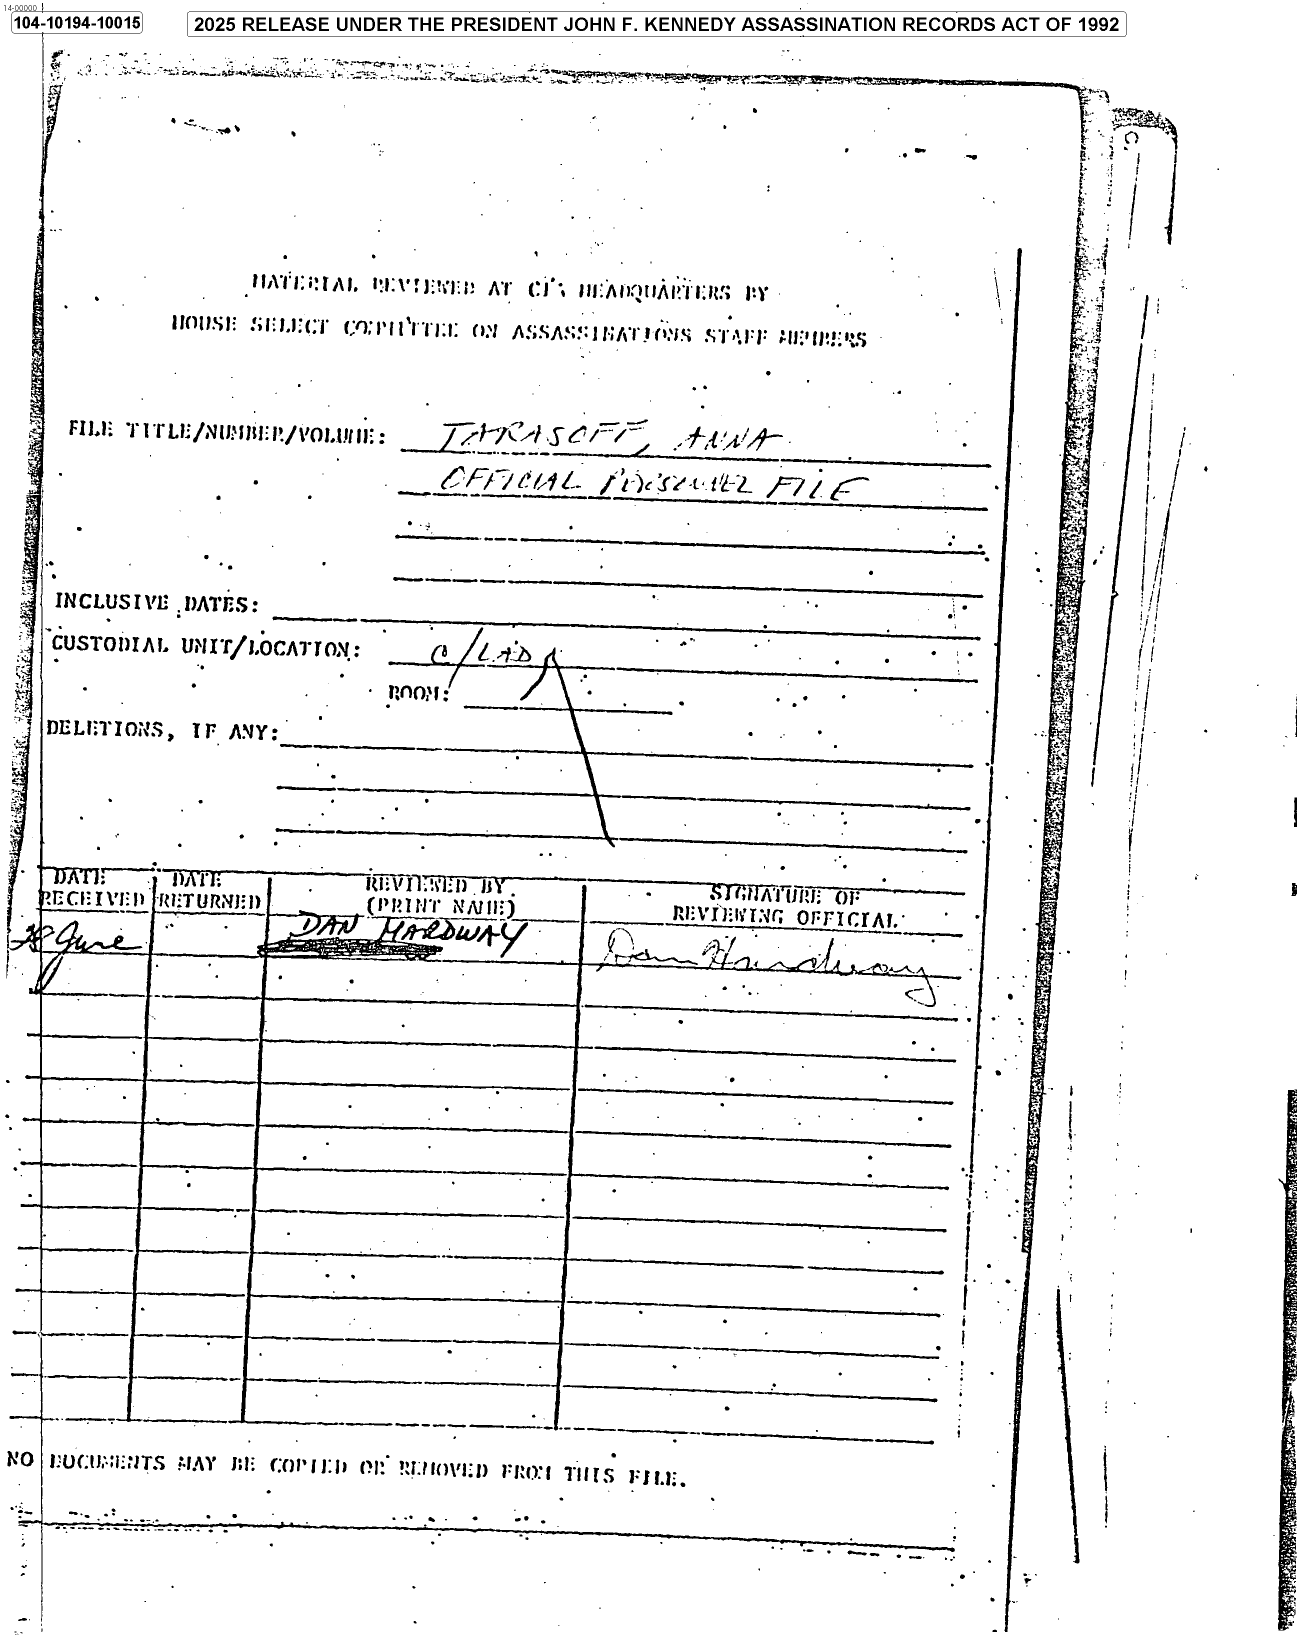 14-00000
104-10194-10015
2025 RELEASE UNDER THE PRESIDENT JOHN F. KENNEDY ASSASSINATION RECORDS ACT OF 1992
C.
MATERIAL REVIEWED AT CIA HEADQUARTERS BY
HOUSE SELECT COMMITTEE ON ASSASSINATIONS STAFF MEMBERS
FILE TITLE/NUMBER/VOLUME: TARASOFF, ANNA
OFFICIAL PERSONNEL FILE
INCLUSIVE DATES:
CUSTODIAL UNIT/LOCATION: C/LAD
ROOM:
DELETIONS, IF ANY:
DATE RECEIVED DATE RETURNED REVIEWED BY (PRINT NAME) SIGNATURE OF REVIEWING OFFICIAL
28 June DAN HARDWAY Dan Hardway
NO DOCUMENTS MAY BE COPIED OR REMOVED FROM THIS FILE.